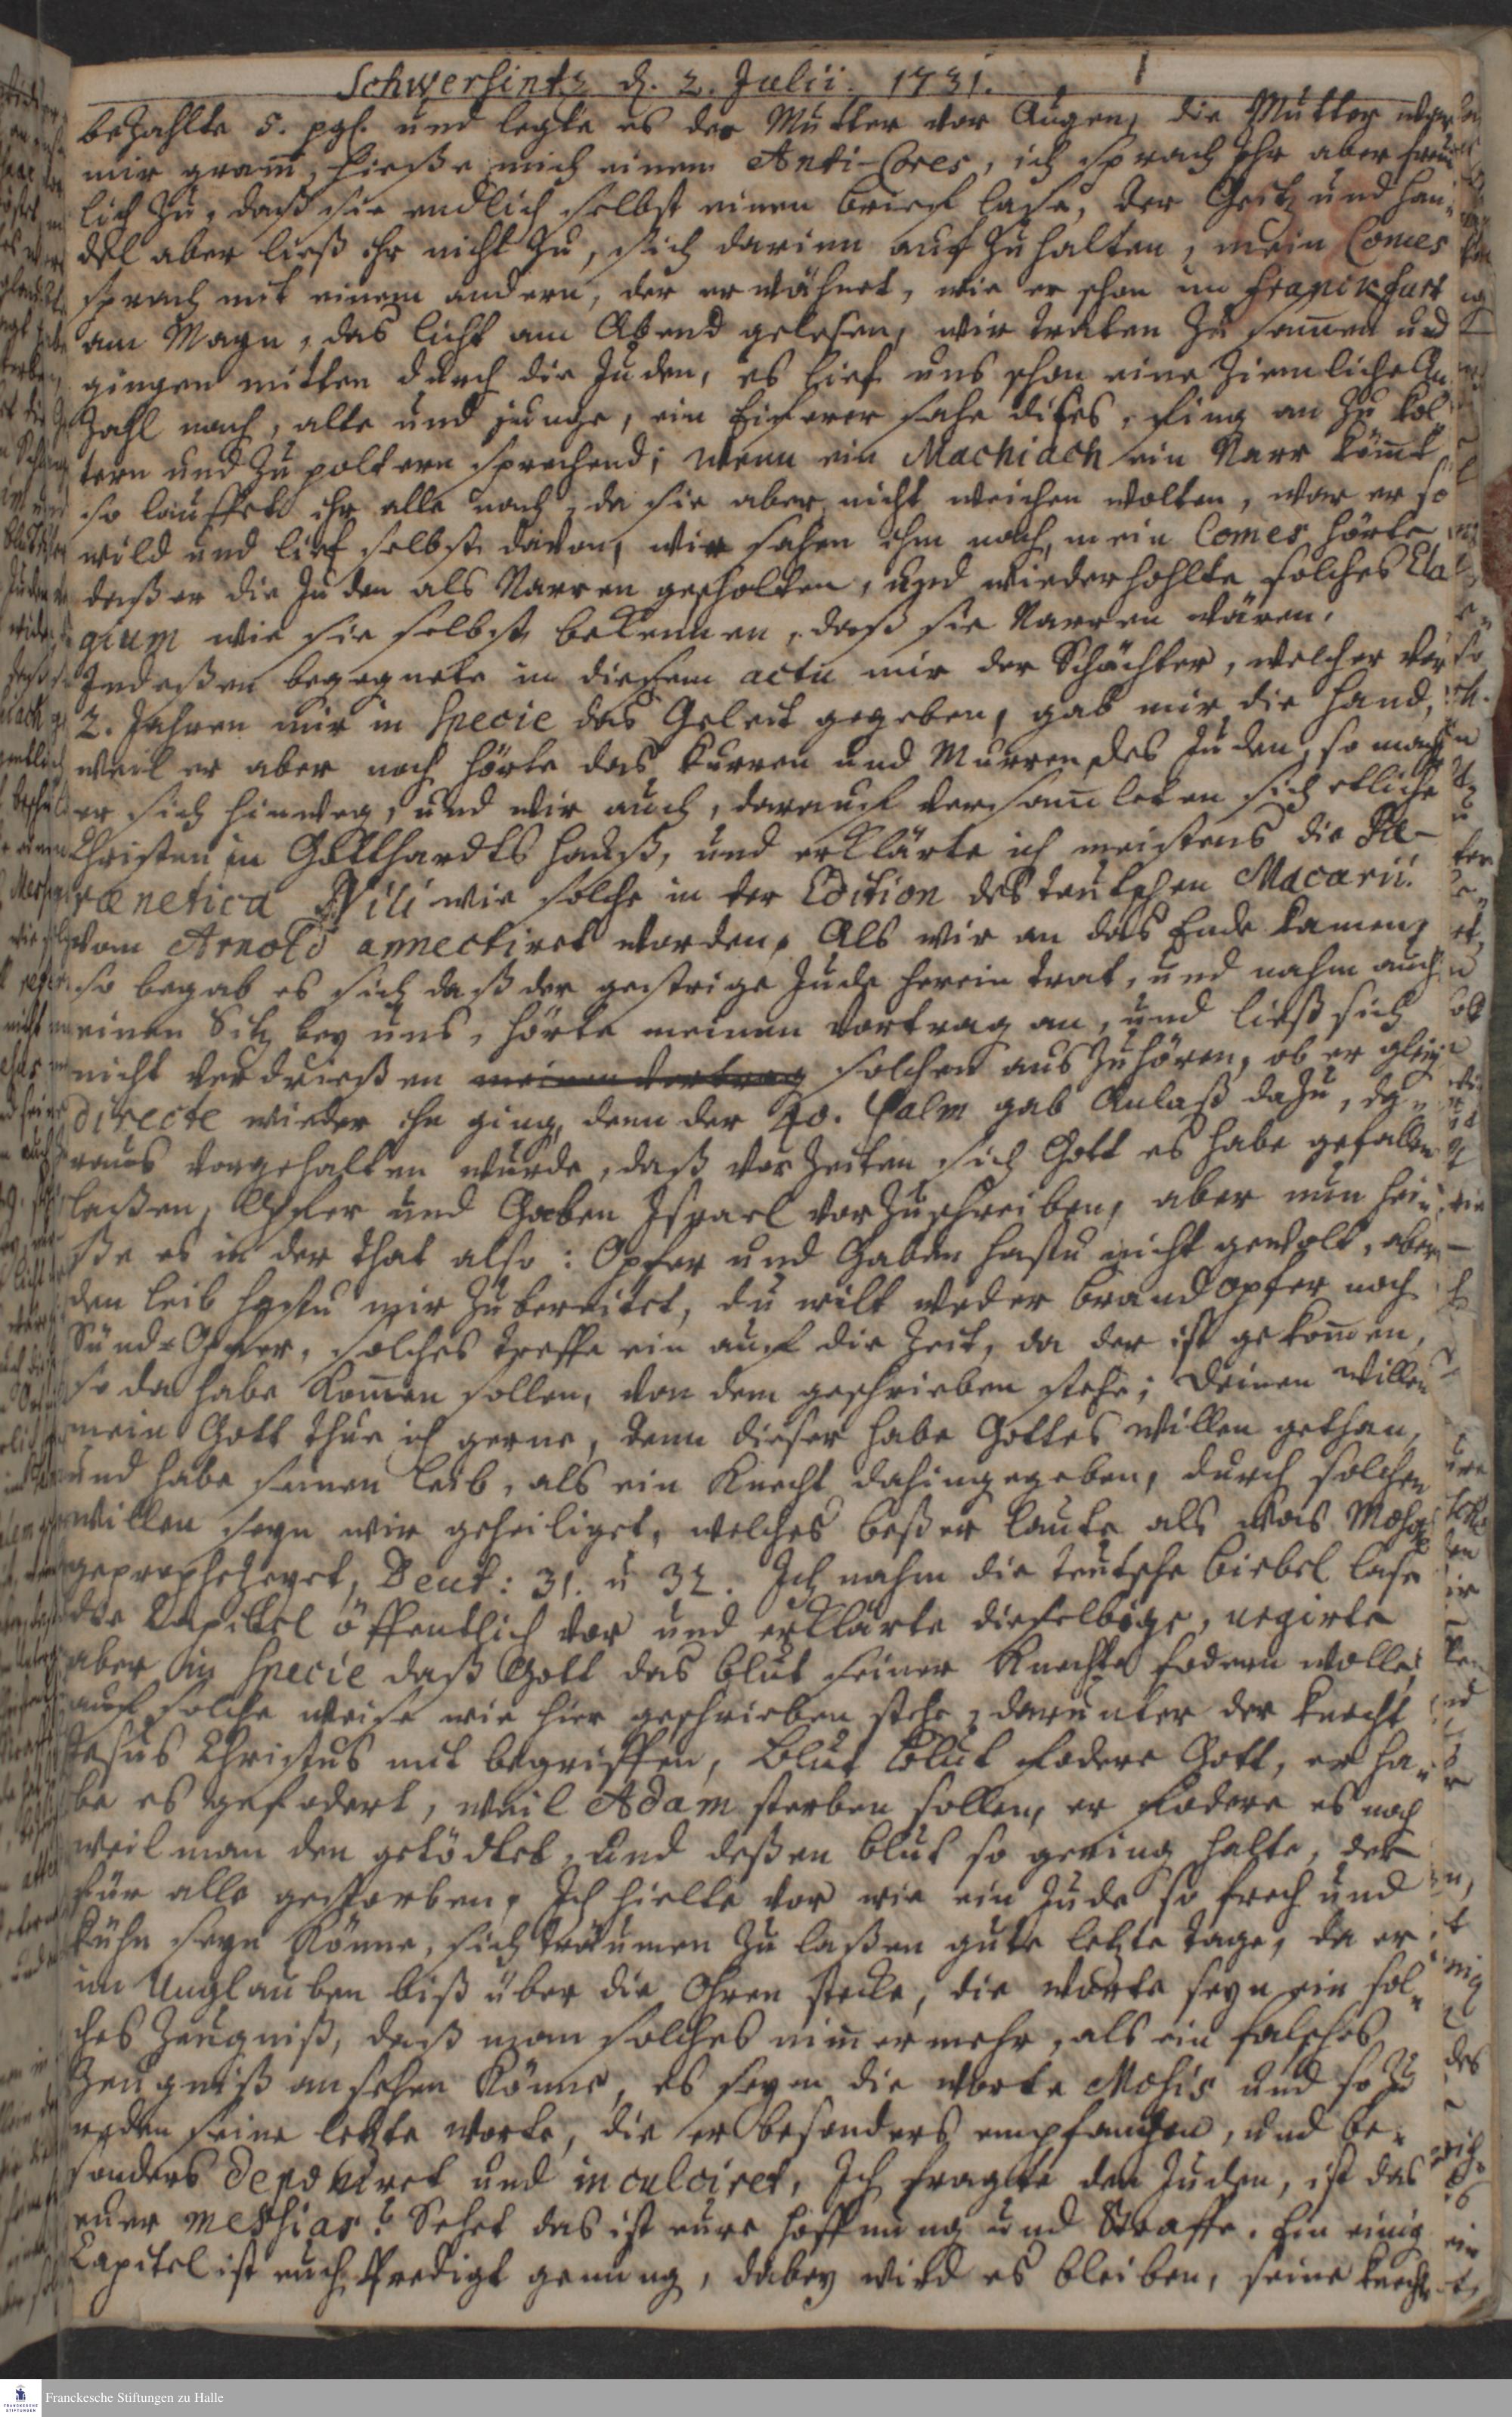 Schwersintz d. 2. Julii. 1731.
bezahlte 5. pgl. und legte es der Mutter vor Augen, die Mutter war
mir gram, hieße mich einem Anti-Cores, ich sprach ihr aber freund
lich zu, daß sie endlich selbst einen brief lase, der Geitz und Han-
del aber ließ ihr nicht zu, sich darinn auf zu halten, mein Comes
sprach mit einem andern, der erwähnet, wie er schon in Franckfurt
am Mayn, das licht am Abend gelesen, wir traten zu sam̄en und
gingen mitten durch die Juden, es lief uns schon eine ziemliche An
zahl nach, alte und junge, ein Eiferer sahe dises, fing an zu kol-
tern und zu poltern sprechend; wenn ein Machiach ein Narr kom̄t
so lauffet ihr alle nach, da sie aber nicht weichen wolten, war er so
wild und lief selbst davon, wir sahen ihm nach, mein Comes hörte
daß er die Juden als Narren gescholten, und wiederhohlte solches Elo
gium wie sie selbst bekennen, daß sie Narren wären.
Indeßen begegnete in diesem actu mir der Schächter, welcher vor
2. Jahren mir in specie das Geleit gegeben, gab mir die Hand,
weil er aber noch hörte das Kurren und Murren der Juden, so macht
er sich hinweg, und wir auch, darauf versam̄leten sich etliche
Christen in Gotthardts Hauß, und erklärte ich meistens die Pa-
rænetica Nili wie solche in der Edition des teutschen Macarii
vom Arnold annectiret worden, Als wir an das Ende kamen,
so begab es sich daß der gestrige Jude herein trat, und nahm auch
einen Sitz bey uns, hörte meinen Vortrag an, und ließ sich
nicht verdrießen meinen Vortrag solchen aus zu hören, ob er gleich
directe wieder ihn ging, denn der 40. Psalm gab Anlaß dazu, da-
raus vorgehalten wurde, daß vor Zeiten sich Gott es habe gefallen
laßen, Opfer und Gaben Israel vorzuschreiben, aber nun hei-
ße es in der that also: Opfer und Gaben hastu nicht gewolt, aber
den leib hastu mir zubereitet, du wilt weder brandopfer noch
Sünd-Opfer, solches treffe ein auf die Zeit, da der ist gekom̄en,
so da habe kom̄en sollen, von dem geschrieben stehe; Deinen Willen
mein Gott thue ich gerne, denn dieser habe Gottes Willen gethan,
und habe seinen leib, als ein Knecht dahingegeben, durch solchen
willen seyn wir geheiliget, welches beßer laute als was Moses
geprophezeyet, Deut: 31. u 32. Ich nahm die teutsche biebel lase
die Capittel öffentlich vor und erklärte dieselbige, urgirte
aber in specie daß Gott das blut seiner Knechte fodern wolle,
auf solche weise wie hier geschrieben stehe, darunter der Knecht
Jesus Christus mit begriffen, Blut Blut fodere Gott, er ha-
be es gefodert, weil Adam sterben sollen, er fodere es noch
weil man den getödtet, und deßen blut so gering halte, der
für alle gestorben, Ich hielte vor wie ein Jude so frech und
kühn seyn könne, sich träumen zu laßen gute letzte tage, da er
im Unglauben biß über die Ohren stecke, die worte seyn ein sol-
ches Zeugniß, daß man solches nim̄ermehr, als ein falsches
Zeugniß ansehen könne, es seyn die worte Mosis und so zu
reden seine letzte worte, die er besonders empfangen, und be-
sonders deponiret und inculciret, Ich fragte den Juden, ist das
euer Messias? Sehet das ist eure hoffnung und Straffe. Ein einig
Capitel ist euch Predigt genung, dabey wird es bleiben, seine Knecht
Franckesche Stiftungen zu Halle